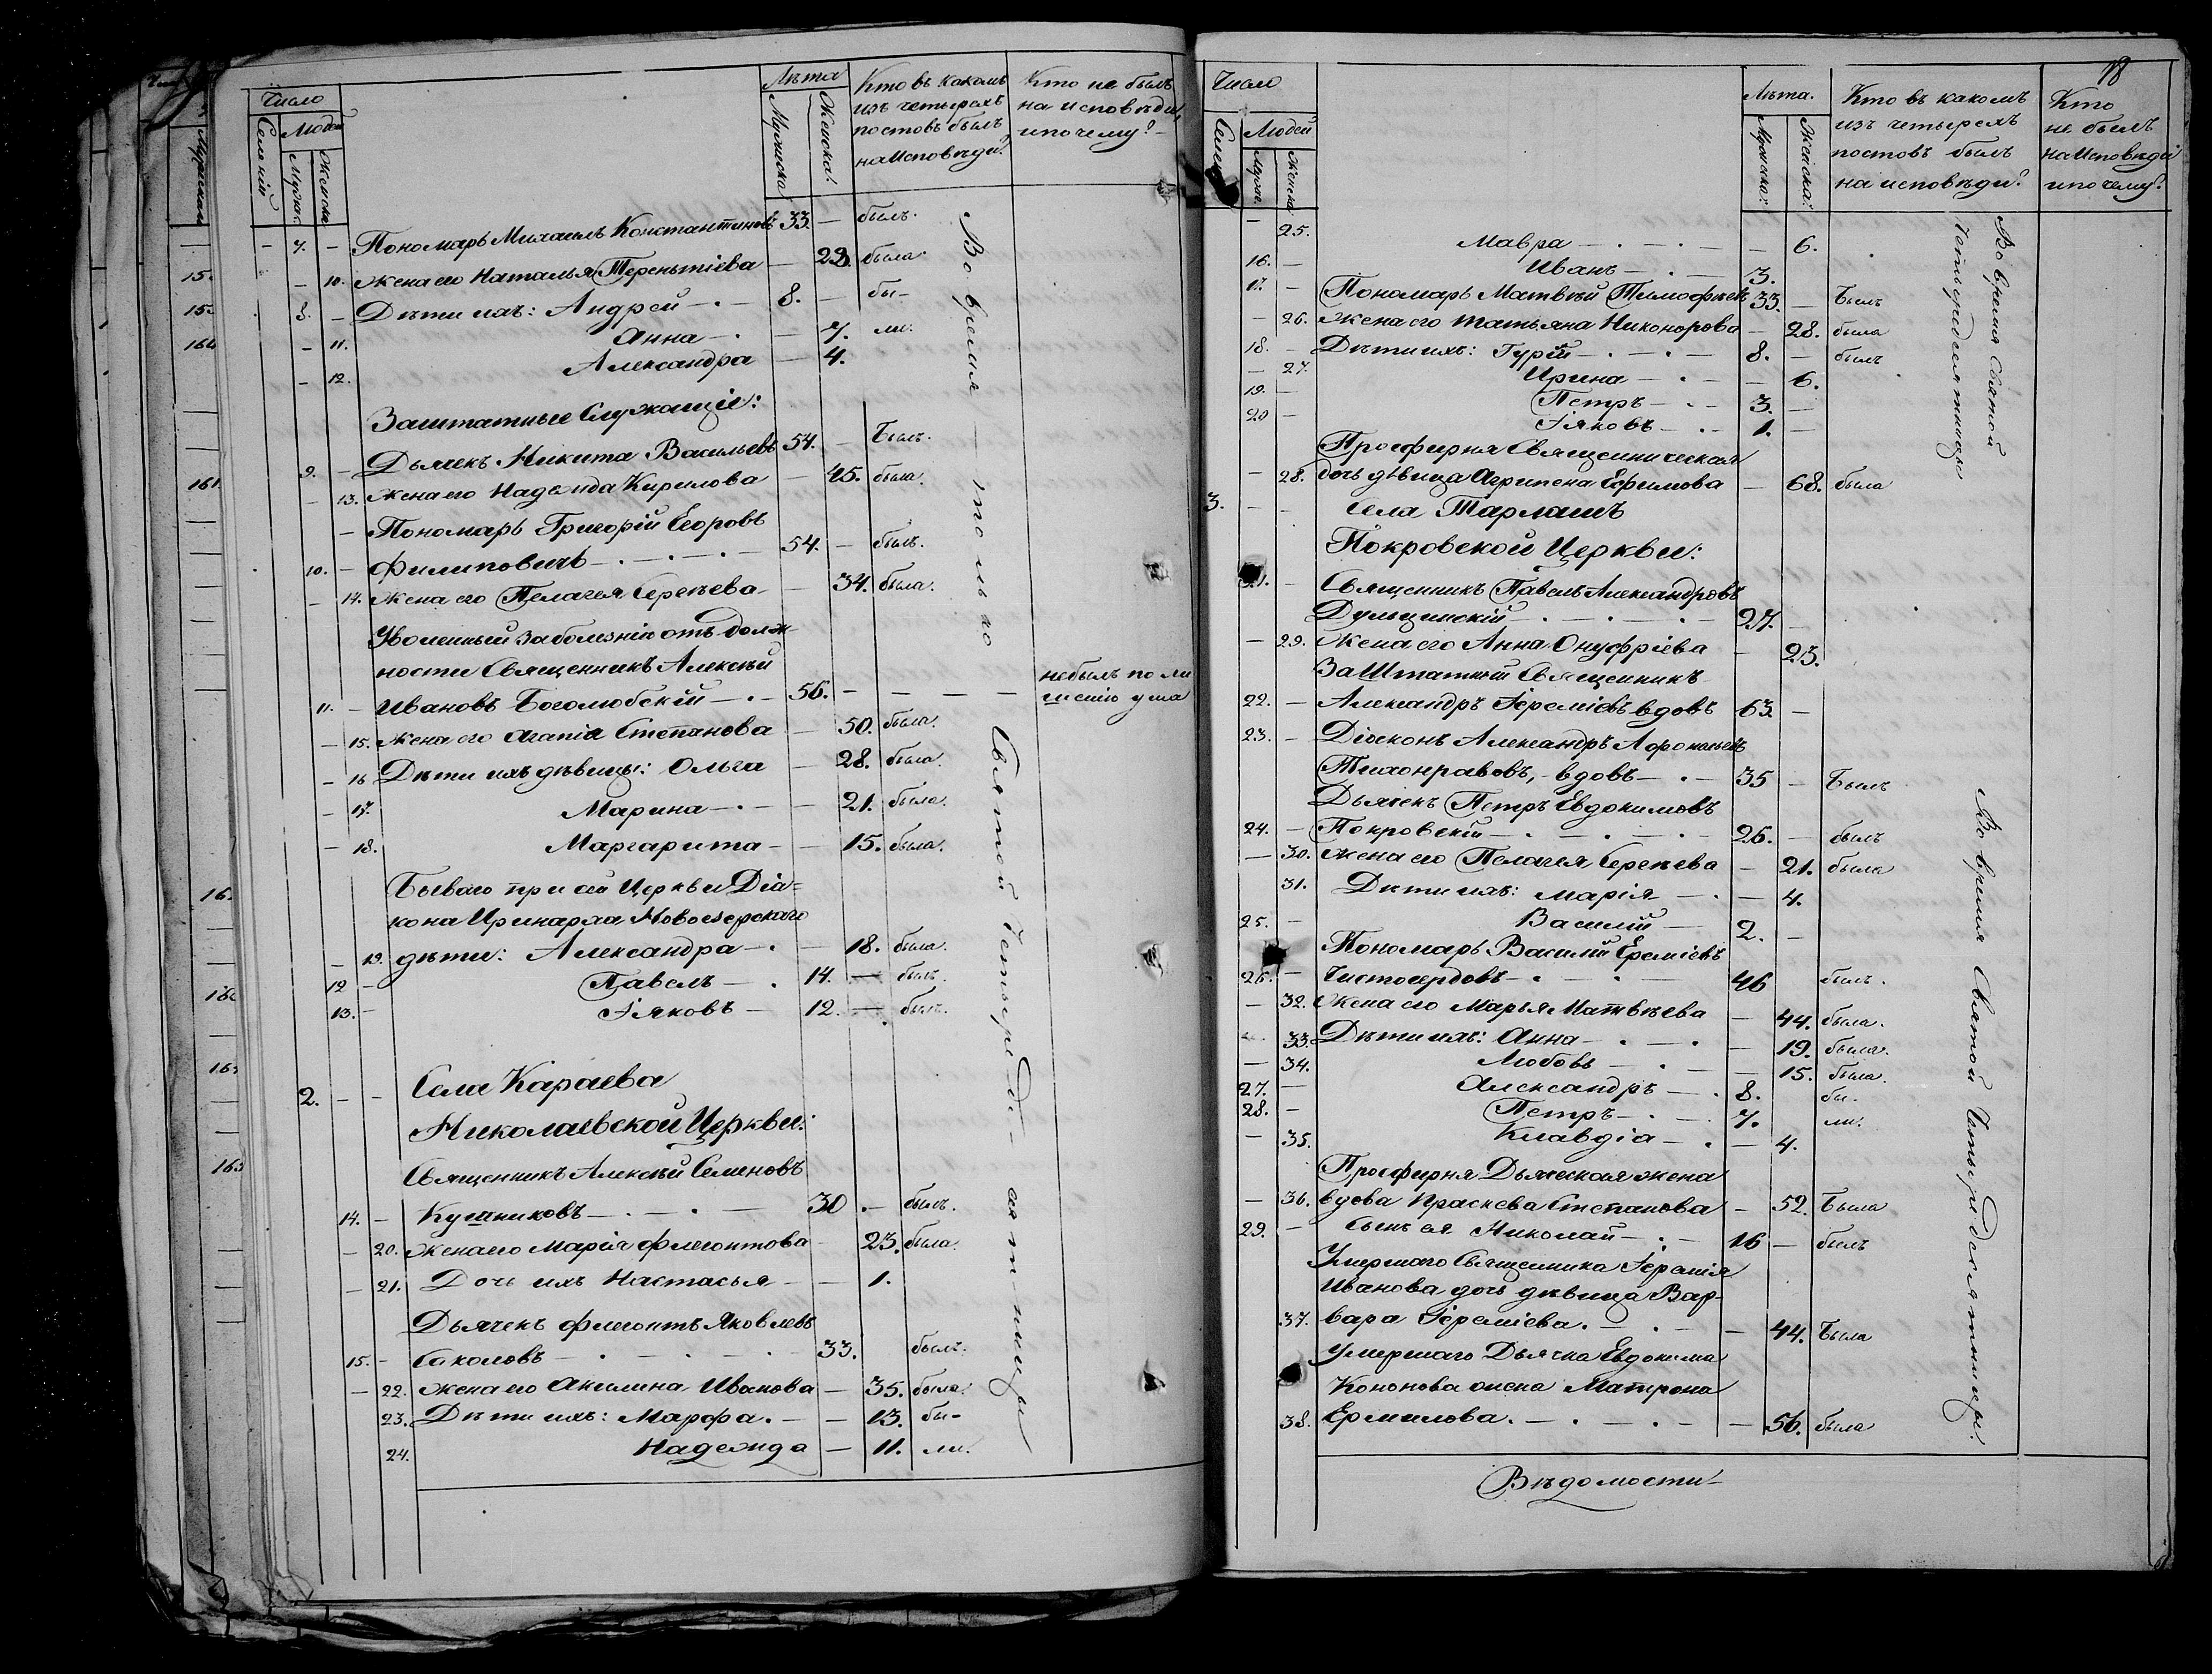 Число
Селеній
Людей
Мужск.
Женска
Лѣта
Мужеска
Женска.
Кто въ какомъ
изъ четырехъ
постовъ былъ
на Исповѣди?
Кто не былъ
на исповѣди,
и почему?
— 7. — Пономарь Михаилъ Константиновъ 33. — былъ.
— 10. Жена его Наталья Терентіева — 23. была
8. — Дѣти ихъ: Андрей — 8. — бы-
— 11. Анна — 7. ли.
— 12. Александра — 4.
Заштатные Служащіе:
9. — Дьячекъ Никита Васильевъ 54. — Былъ.
— 13. Жена его Надежда Кирилова — 45. была.
— Пономарь Григорій Егоровъ
10. — Филиповичъ 54. — былъ.
— 14. Жена его Пелагея Сергѣева — 34. была.
Уволенный за болезнію отъ долж-
ности Священникъ Алексѣй
11. — Ивановъ Боголюбскій — 56. — — — — не былъ по ли
шенію ума
— 15. Жена его Агапія Степанова — 50. была.
— 16 Дѣти ихъ дѣвицы: Ольга — 28. была.
— 17. Марина — 21. была.
— 18. Маргарита — 15. была.
Бываго при сей Церкви Діа=
кона Иринарха Новоезерскаго
— 19. дѣти: Александра — 18. была.
12 — Павелъ — 14. — былъ.
13. — Іяковъ — 12. — былъ.
2. — — Села Караева
Николаевской Церкви:
Священникъ Алексѣй Семеновъ
14. — Кушниковъ — 30 — былъ.
— 20. Жена его Марія Флегонтова 23. была.
— 21. Дочь ихъ Настасья — 1.
Дьячекъ Флегонтъ Яковлевъ
15. — Соколовъ — 33. былъ.
— 22. Жена его Акилина Иванова — 35. была.
23. Дѣти ихъ: Марфа. — 13. бы-
24. Надежда — 11. ли.
Во время — только Святой Четыреде- сятницы
18
Число
Селен
Людей
Муже.
Женска
Лѣта.
Мужска.
Женска.
Кто въ какомъ
изъ четырехъ
постовъ былъ
на исповѣди?
Кто
не былъ
на Исповѣди
и почему?
— 25. Мавра — 6.
16. — Иванъ — 3.
17. — Пономарь Матвѣй Тимофѣевъ 33. — Былъ
— 26. Жена его Татьяна Никонорова — 28. была
18. — Дѣти ихъ: Гурій — 8. — былъ
— 27. Ирина — 6.
19. — Петръ — 3. —
20 — Іяковъ — 1. —
Просфирня Священническая
— 28. дочь дѣвица Агрипена Ефимова — 68. была
Во время Святой
Четыредесятницы
3. — — Села Тарлашъ
Покровской Церкви:
21. — Священникъ Павелъ Александровъ
Дульцинскій — 27. —
— 29. Жена его Анна Онуфріева — 23.
За Штатный Священникъ
22. — Александръ Іереміевъ вдовъ 63. —
23. — Діаконъ Александръ Афонасьевъ
Тихонравовъ, вдовъ — 35 — Былъ
Дьячекъ Петръ Евдокимовъ
24. — Покровскій — 26. — былъ
— 30. Жена его Пелагея Сергѣева — 21. была
31. Дѣти ихъ: Марія — 4.
25. — Василій — 2. —
Пономарь Василій Ереміевъ
26. — Чистосердовъ — 46 былъ.
— 32. Жена его Марья Матвѣева — 44. была.
33. Дѣти ихъ: Анна — 19. была.
— 34. Любовь — 15. была.
27. — Александръ — 8. бы-
28. — Петръ — 7. ли.
— 35. Клавдіа — 4.
Просфирня Дьяческая жена
— 36. вдова Праскева Степанова — 52. Была
29. — сынъ ея Николай — 16 — былъ
Умершаго Священника Іеремія
Иванова дочь дѣвица Вар-
37. вара Іереміева. — 44. Была
Умершаго Дьячка Евдокима
Кононова жена Матрона
38. Ермилова. — 56. была
Во время Святой Четыредесятницы.
Вѣдомости